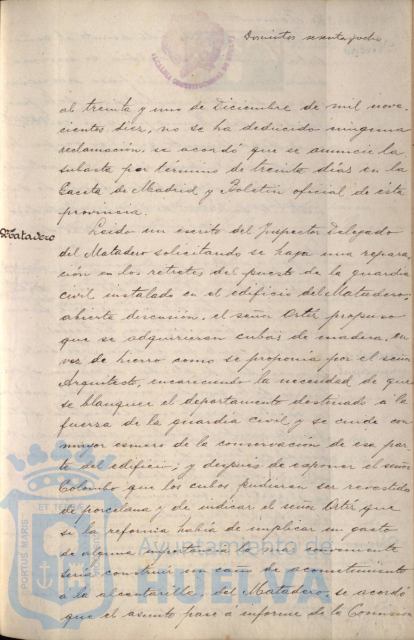 Doscientos sesenta y ocho
al treinta y uno de Diciembre de mil nove-
cientos diez, no se ha deducido ninguna
reclamación, se acordó que se anuncie la
subasta por término de treinta días en la
Gaceta de Madrid y Boletín oficial de esta
provincia.
Matadero
Leido un escrito del Inspector Delegado
del Matadero solicitando se haga una repara-
ción en los retretes del puesto de la guardia
civil instalado en el edificio del Matadero,
abierta discusión, el señor Ortíz propuso
que se adquirieran cubos de madera, en
vez de hierro como se proponía por el señor
Arquitecto, encareciendo la necesidad de que
se blanquee el departamento destinado a la
fuerza de la guardia civil y se cuide con
mayor esmero de la conservación de esa par-
te del edificio; y después de exponer el señor
Colombo que los cubos pudieran ser revestidos
de porcelana y de indicar el señor Ortíz que
si la reforma había de implicar un gasto
de alguna importancia lo más conveniente
sería construir un caño de acometimiento
á la alcantarilla del Matadero, se acordó
que el asunto pase á informe de la Comision
PORTUS MARIS
ET TERRE
Ayuntamiento de
HUELVA